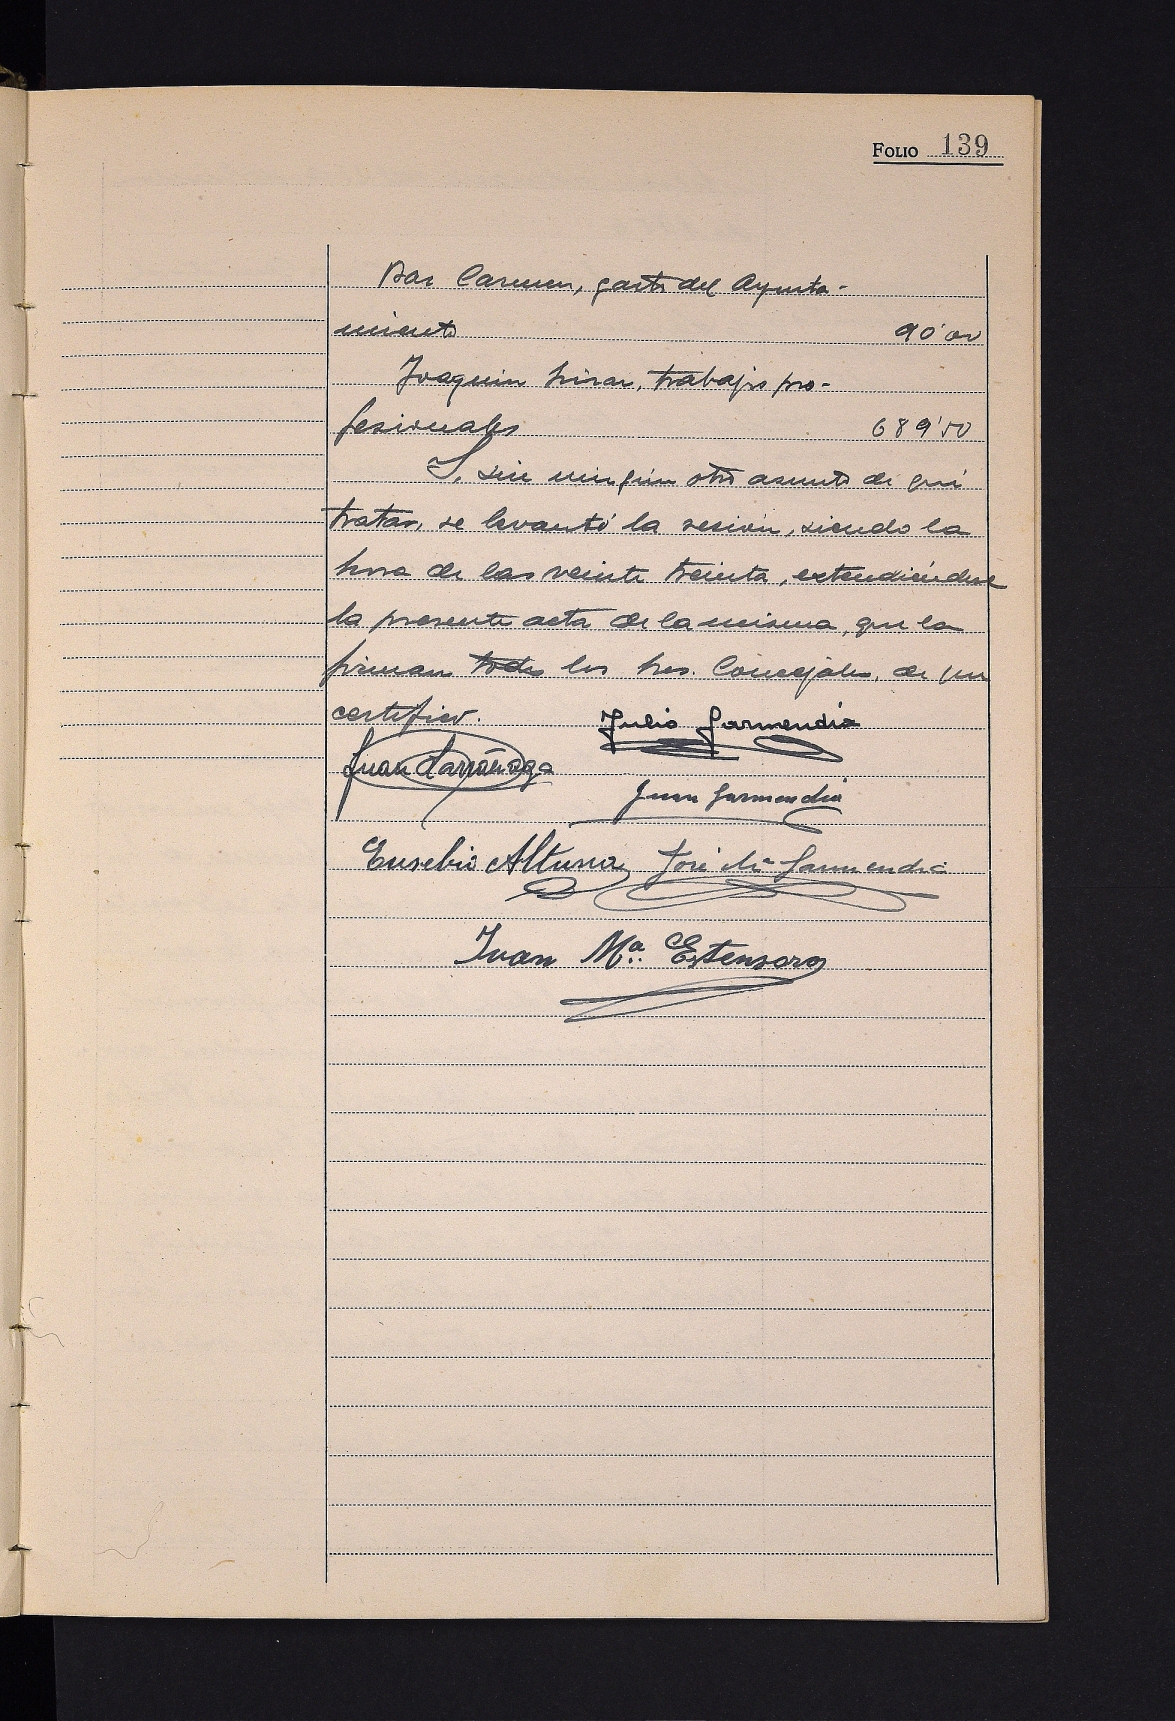 FOLIO 139
Bar Carmen, gastos del Ayunta-
miento 90'00
Joaquin, trabajos pro-
fesionales 689'50
Y, sin ningún otro asunto de que
tratar, se levantó la sesión, siendo la
hora de las veinte treinta, extendiéndose
la presente acta de la misma, que la
firman todos los Sres. Concejales, de que
certifico. Julio Garmendia
Juan Larrañaga
Juan Garmendia
Eusebio Altuna José Mª Garmendia
Juan Mª. Estensoro